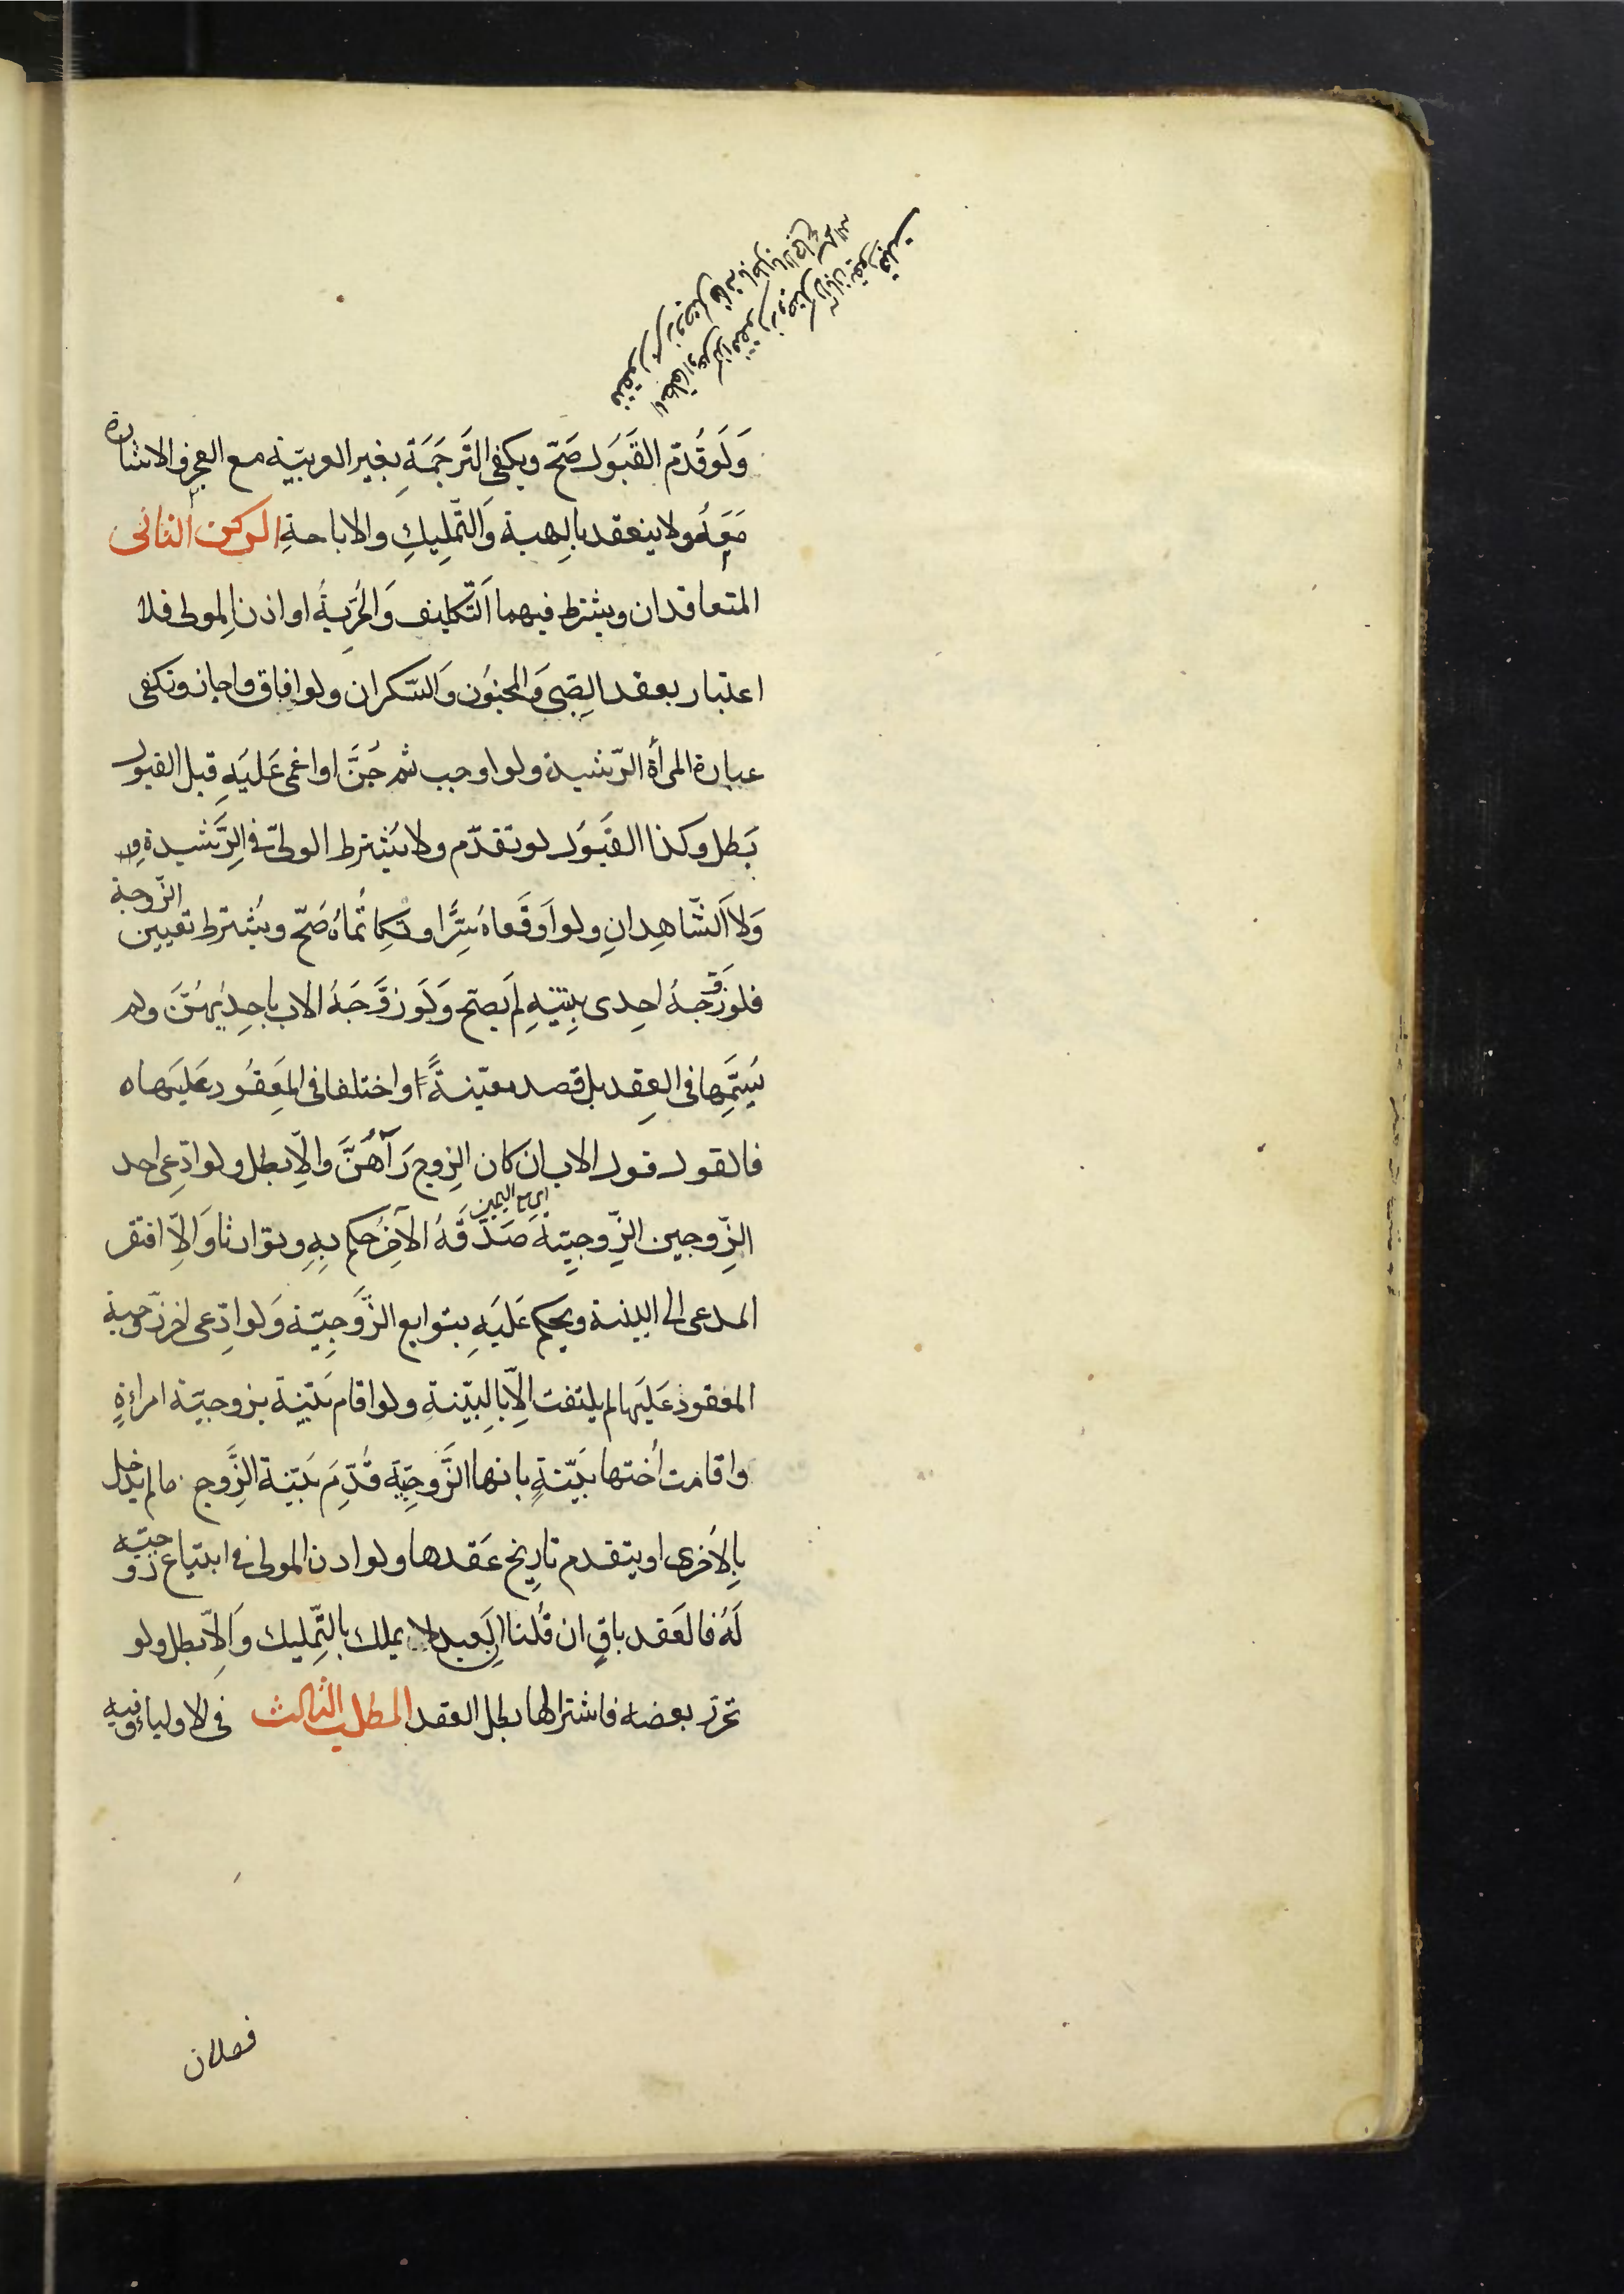 وَلَو قُدّم القَبَول صَحّ ويكفى التَرجَمَةِ بغير العربيّة مع العجز والاشارة
مَعَهُ ولا ينعقد بالِهبة وَالتّملِيكِ والاباحةِ الركن الثانى
المتعاقدان ويشترط فيهما اَلتّكليف وَالحُرّيةُ او اذن اِلمولى فلا
اعتبار بعقد الِصّبى وَالمجنوُن وَالسّكران ولو افاق واجاز وتكفى
عبارة المرأة الرّشيدة ولو اوجب ثم جُنَّ او اغمى عَليَهِ قبل القبول
بَطل وكذا القَبوَل لو تقدّم ولا يَشترط الولىّ فى الِرّشيدة
وَلا اَلشّاهِدانِ ولو اَوقَعاهُ سِرًّا وتَكاتُماهُ صَحّ ويُشترط تعيين الزّوجة
فلو زَوّجهُ احِدى بِنتيَهِ لم يصّح وَلَو زَوَّجَهُ الاب باِحِديٰهُنَّ ولم
يُسَمِّها فى العِقد بل قصد معيّنةً او اختلفا فى المَعِقوُد عَليَها ه
فالقول قول الاب ان كان الزِوج رَآهُنَّ والِاّ بطل ولو ادّعِى احد
الزّوجين الزّوجيّة صَدّقَهُ الآخَرُ حكم بِهِ وتوارثا وَالاِّ افتقر
اى مع اليمين
المدعى الى البينة ويحكم عَليَهِ بتوابع الزّوَجِيّة وَلو ادّعِى اخر زوجية
المعقود عَليَها لم يلتفت الِاّ باِلبيّنةِ ولو اقام بَيّنِة بزوجيّة امراءةٍ
واقامت اُختها بَيّنةٍ بانها الزَّوجِيّة قُدِّمَ بَيّنِة الزِّوج ما لم يدخل
باِلاُخرى او يتقدم تاريخ عَقدها ولو اذن المولى فى ابتياع زوجيّه
لَهُ فالعَقد باقٍ ان قُلنا اِلعَبد لا يملك بالتّمِليك وَالِاّ بطل ولو
تحرّر بعضه فاشتراها بطل العقد المطلب الثالث فى الاولياء وفيه
فصلان